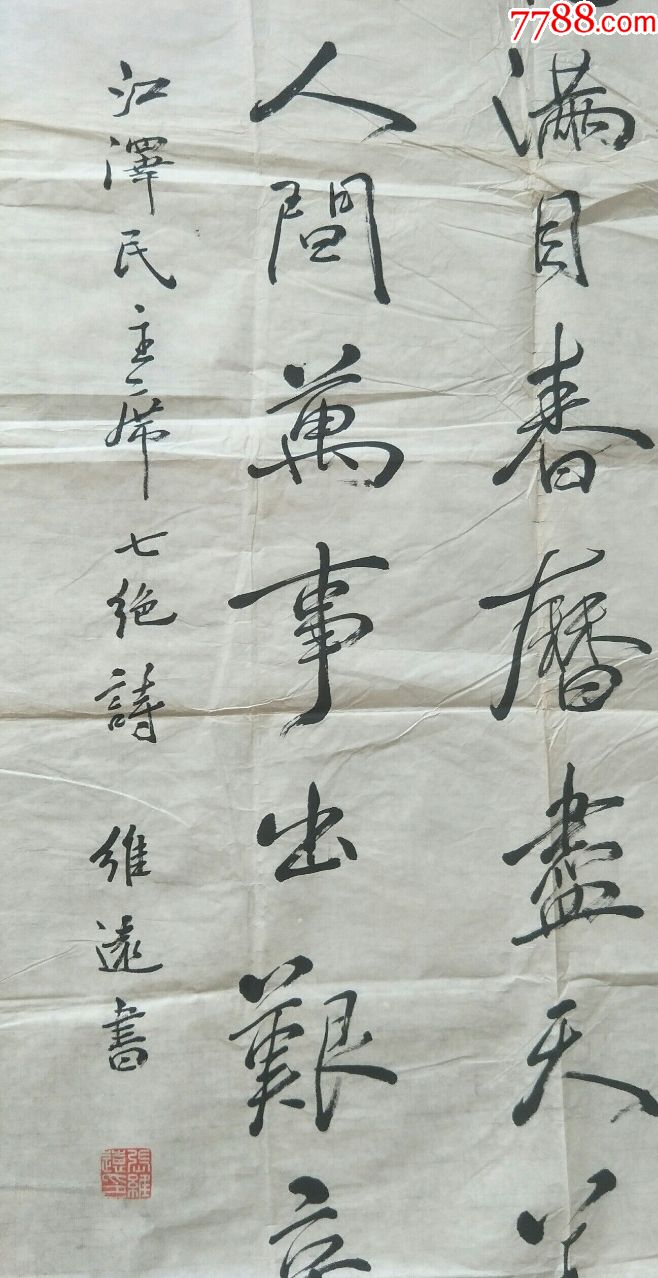 7788.com
滿目春曆盡天
人間萬事出艱
江澤民主席七絶詩 維遠書
張維遠印